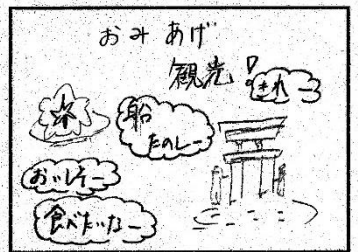 おみあげ
観光!
きれーう
船
たのしー
おいしそー
食べたいなー